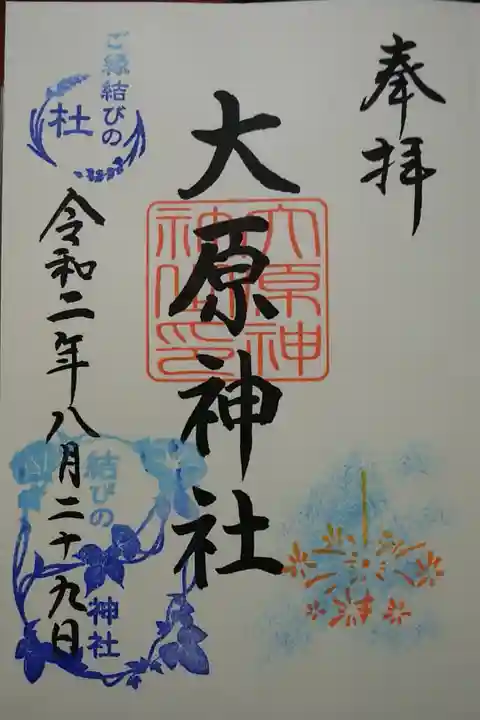 奉拝
大原神社
大原神社神社印
ご縁結びの
杜
令和二年八月二十九日
結びの
神社